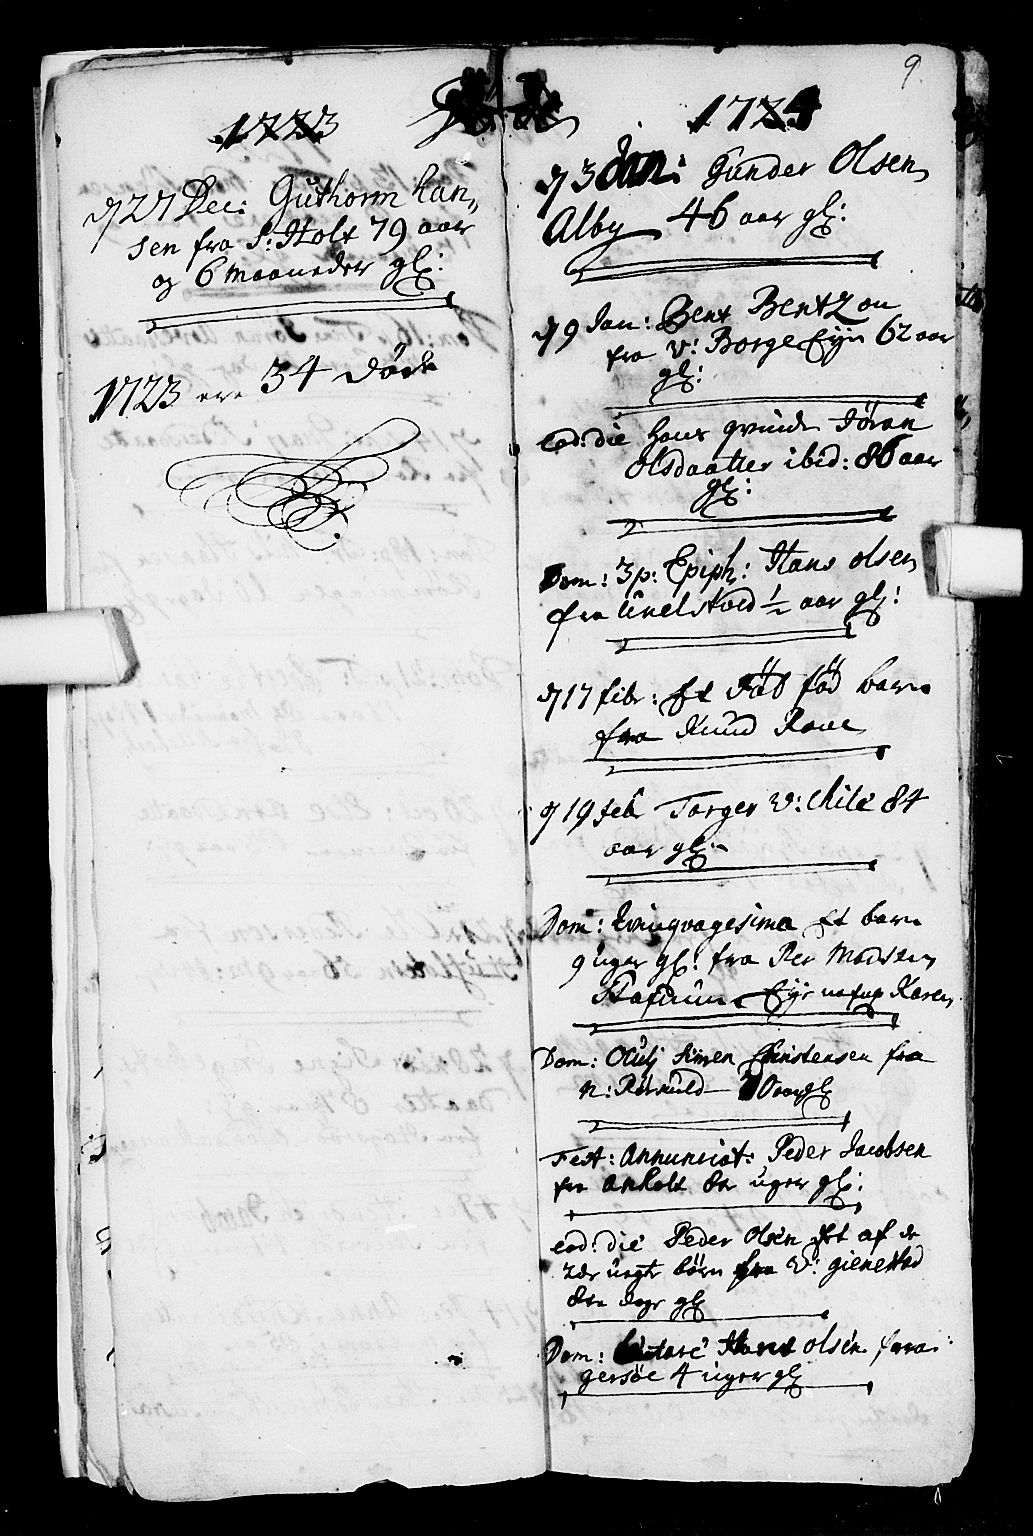 1723
d 27 Dec: Guthorm Han„
sen fra S: Holt 79 aar
og 6 maaneder gl:
1723 ere 34 døde
9
1724
d 3 Jan: Gunder Olsen
Alby 46 aar gl:
d 9 Jan: Bent Bentzon
fra V: Borge Eyn 62 aar
gl:
eod: die hans qvinde Jøran
Olsdaatter ibid: 86 aar
gl:
Dom: 3 p: Epiph: Hans Olsen
fra Unelstved ½ aar gl:
d 17 febr: Et død fød barn
fra Knud Rове
d 19 feb Torger V: Mile 84
aar gl:
Dom: Qvinqvagesima Et barn
9 uger gl: fra Per Madsen
Eyr nafnl Karen
Dom: Oculj Simen Christensen fra
N: Rørkuld 70 aar gl
Fest: Annunciat: Peder Jacobsen
fra Anholt 8te uger gl:
eod: die Peder Olsen Et af de
2de uegte børn fra V: gienestad
8te dage gl
Dom: Letare Hans Olsen fra
gersøe 4 uger gl